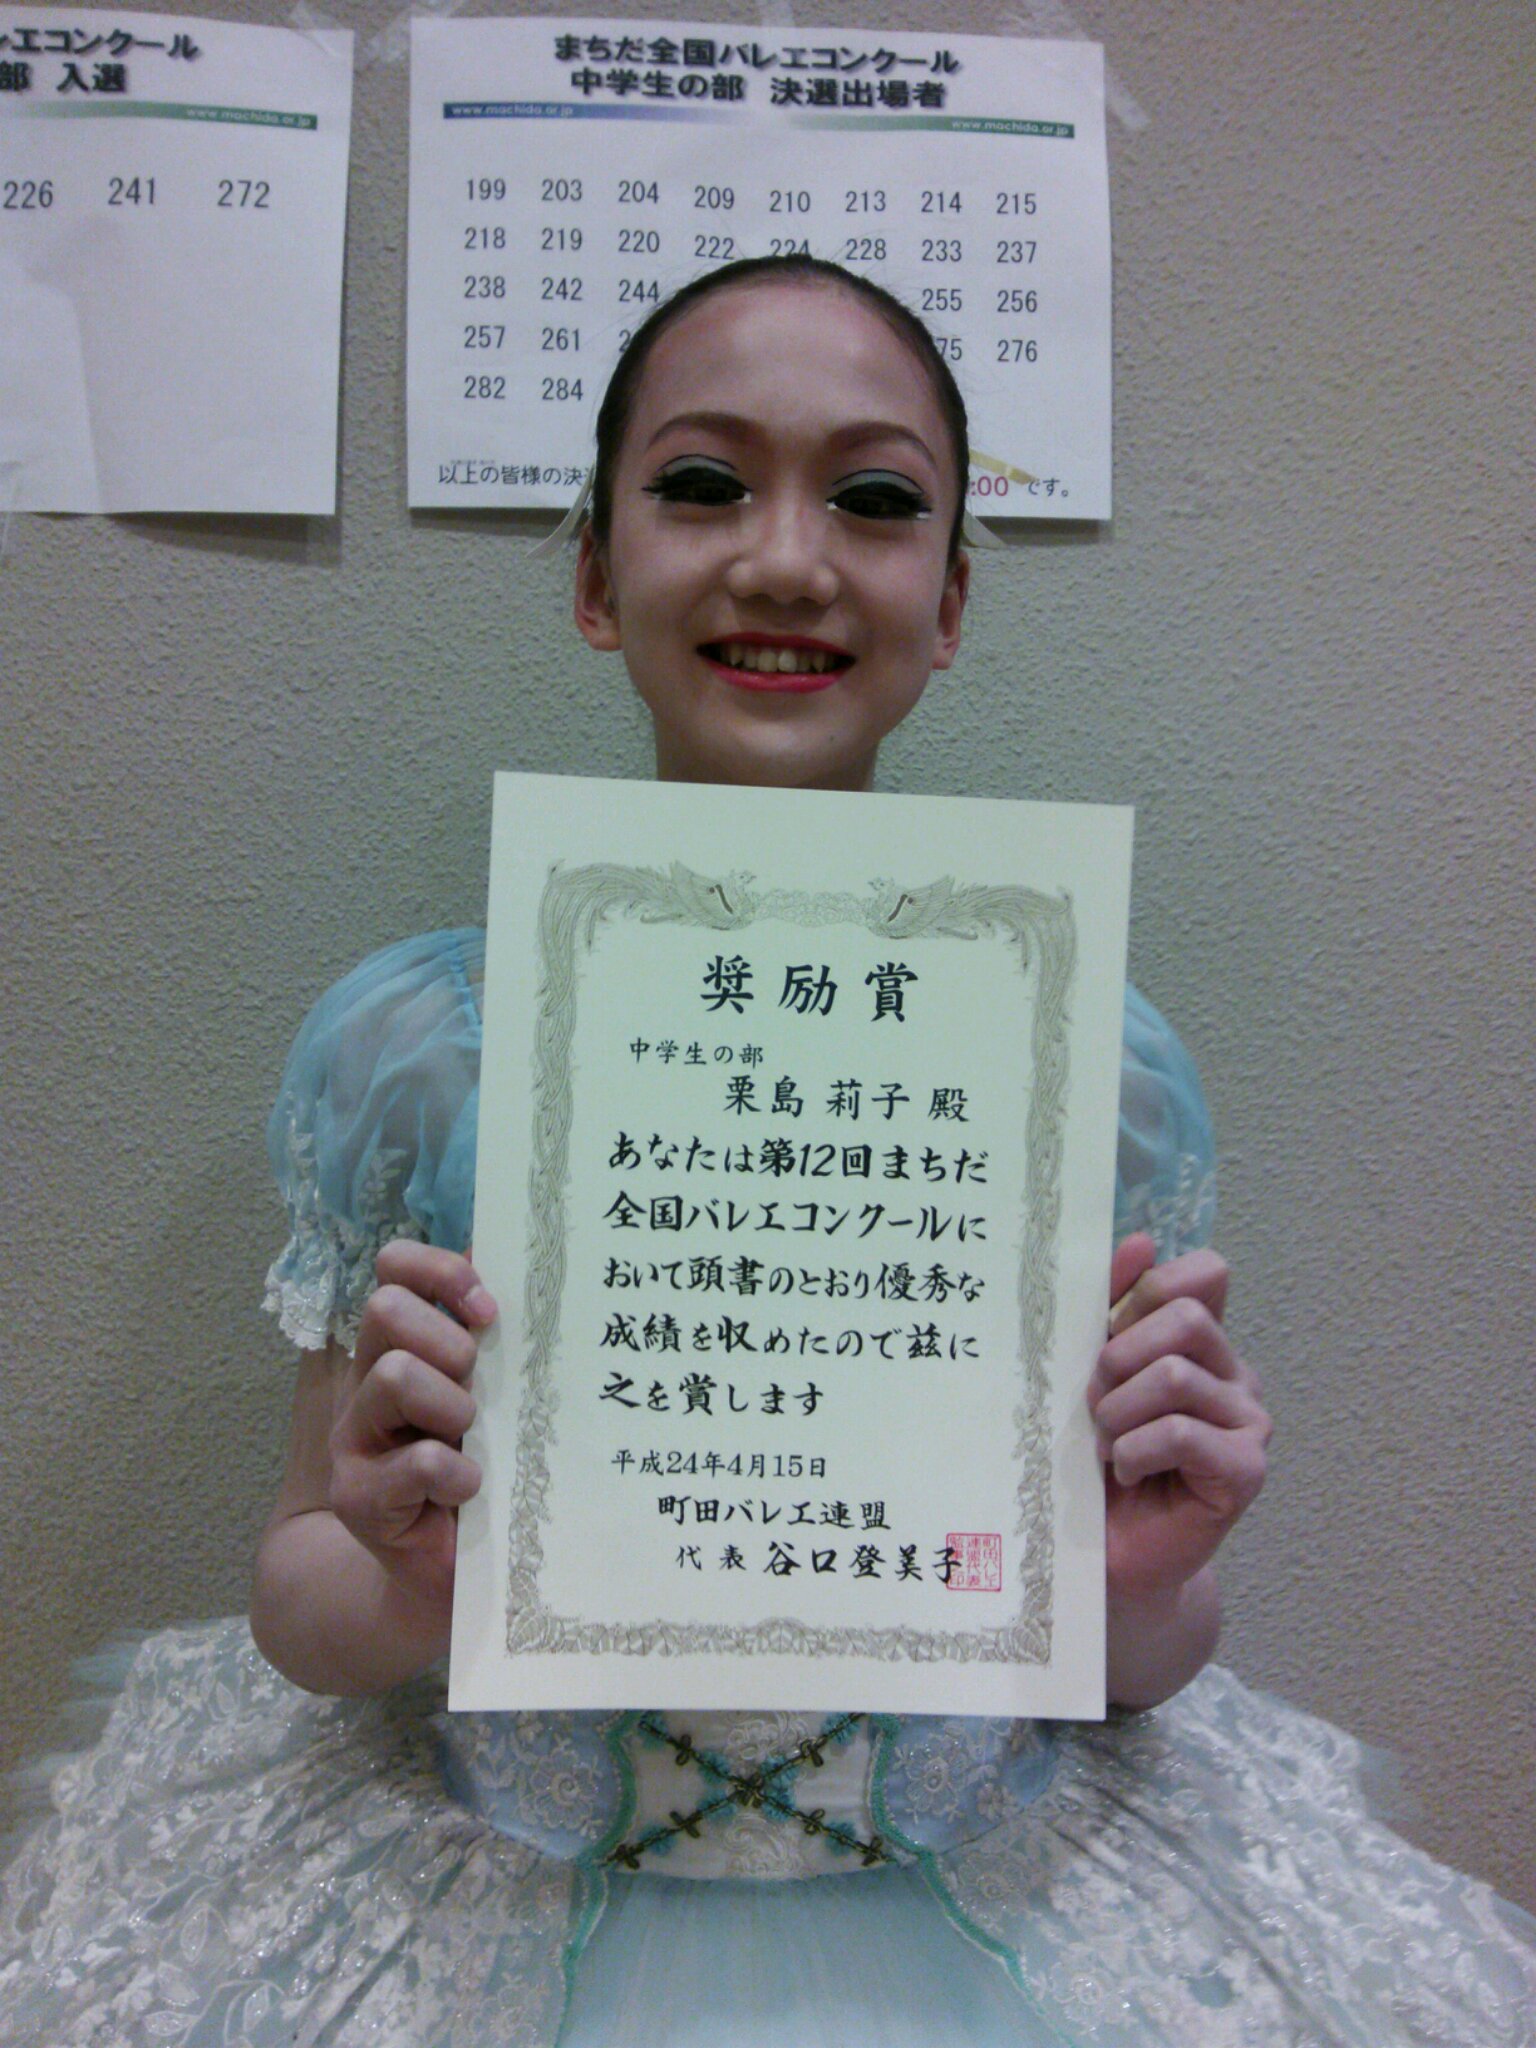 レエコンクール
部 入選
www.machida.or.jp
226 241 272
まちだ全国バレエコンクール
中学生の部 決選出場者
www.machida.or.jp
www.machida.or.jp
199 203 204 209 210 213 214 215
218 219 220 222 224 228 233 237
238 242 244 255 256
257 261 75 276
282 284
以上の皆様の決 :00 です。
奨励賞
中学生の部
栗島 莉子 殿
あなたは第12回まちだ
全国バレエコンクールに
おいて頭書のとおり優秀な
成績を収めたので茲に
之を賞します
平成24年4月15日
町田バレエ連盟
代表 谷口登美子